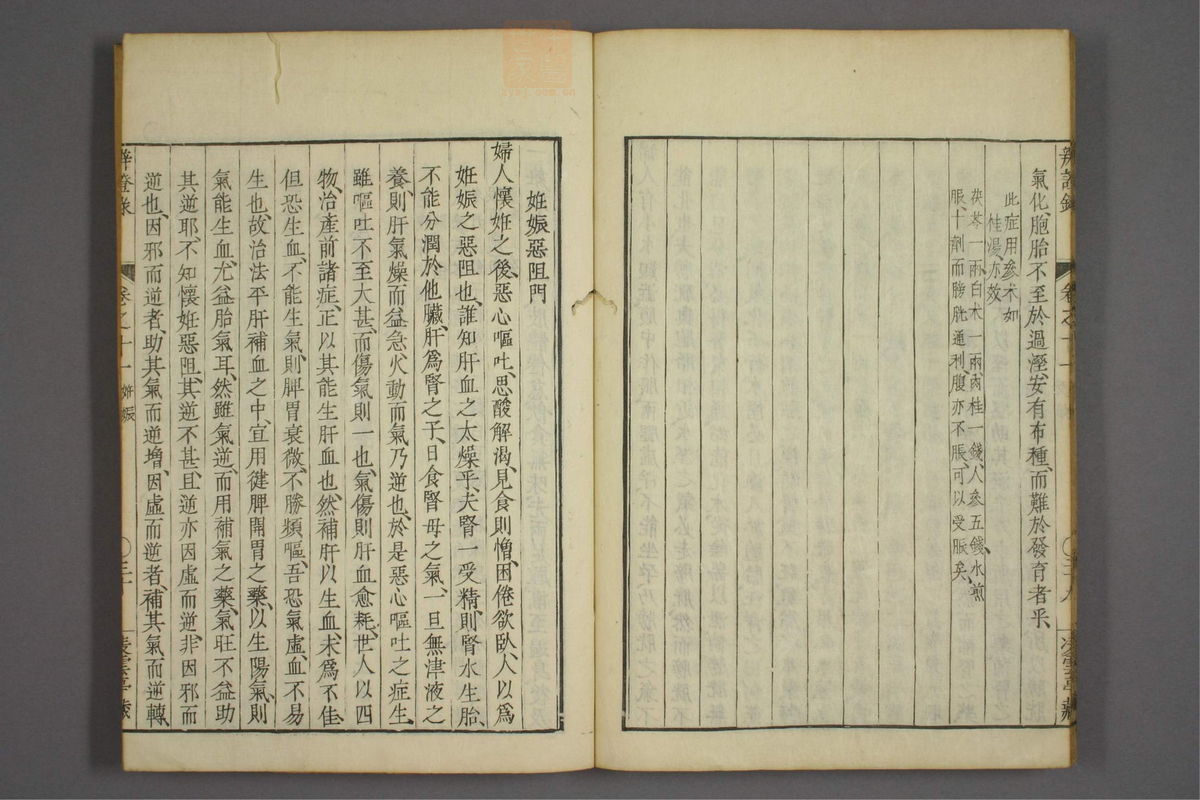 氣化、胞胎不至於過溼、安有布種、而難於發育者乎、
此症用參朮、如
桂湯、亦效
茯苓一兩、白朮一兩、肉桂一錢、人參五錢、水煎
服、十劑而膀胱通利、腹亦不脹、可以受脤矣、
卷之十一
妊娠惡阻門
婦人懷妊之後、惡心嘔吐、思酸解渴、見食則憎、困倦欲臥、人以爲
妊娠之惡阻也、誰知肝血之太燥乎、夫腎一受精、則腎水生胎、
不能分潤於他臟、肝爲腎之子、日食腎母之氣、一旦無津液之
養、則肝氣燥而益急、火動而氣乃逆也、於是惡心嘔吐之症生、
雖嘔吐不至大甚、而傷氣則一也、氣傷則肝血愈耗、世人以四
物、治產前諸症、正以其能生肝血也、然補肝以生血、未爲不佳、
但恐生血、不能生氣、則脾胃衰微、不勝頻嘔、吾恐氣虛、血不易
生也、故治法平肝補血之中、宜用健脾開胃之藥、以生陽氣、則
氣能生血、尤益胎氣耳、然雖氣逆、而用補氣之藥、氣旺不益助
其逆耶、不知懷妊惡阻、其逆不甚、且逆亦因虛而逆、非因邪而
逆也、因邪而逆者、助其氣而逆增、因虛而逆者、補其氣而逆轉、
辨證錄
卷之十一 妊娠
凌雲亭藏